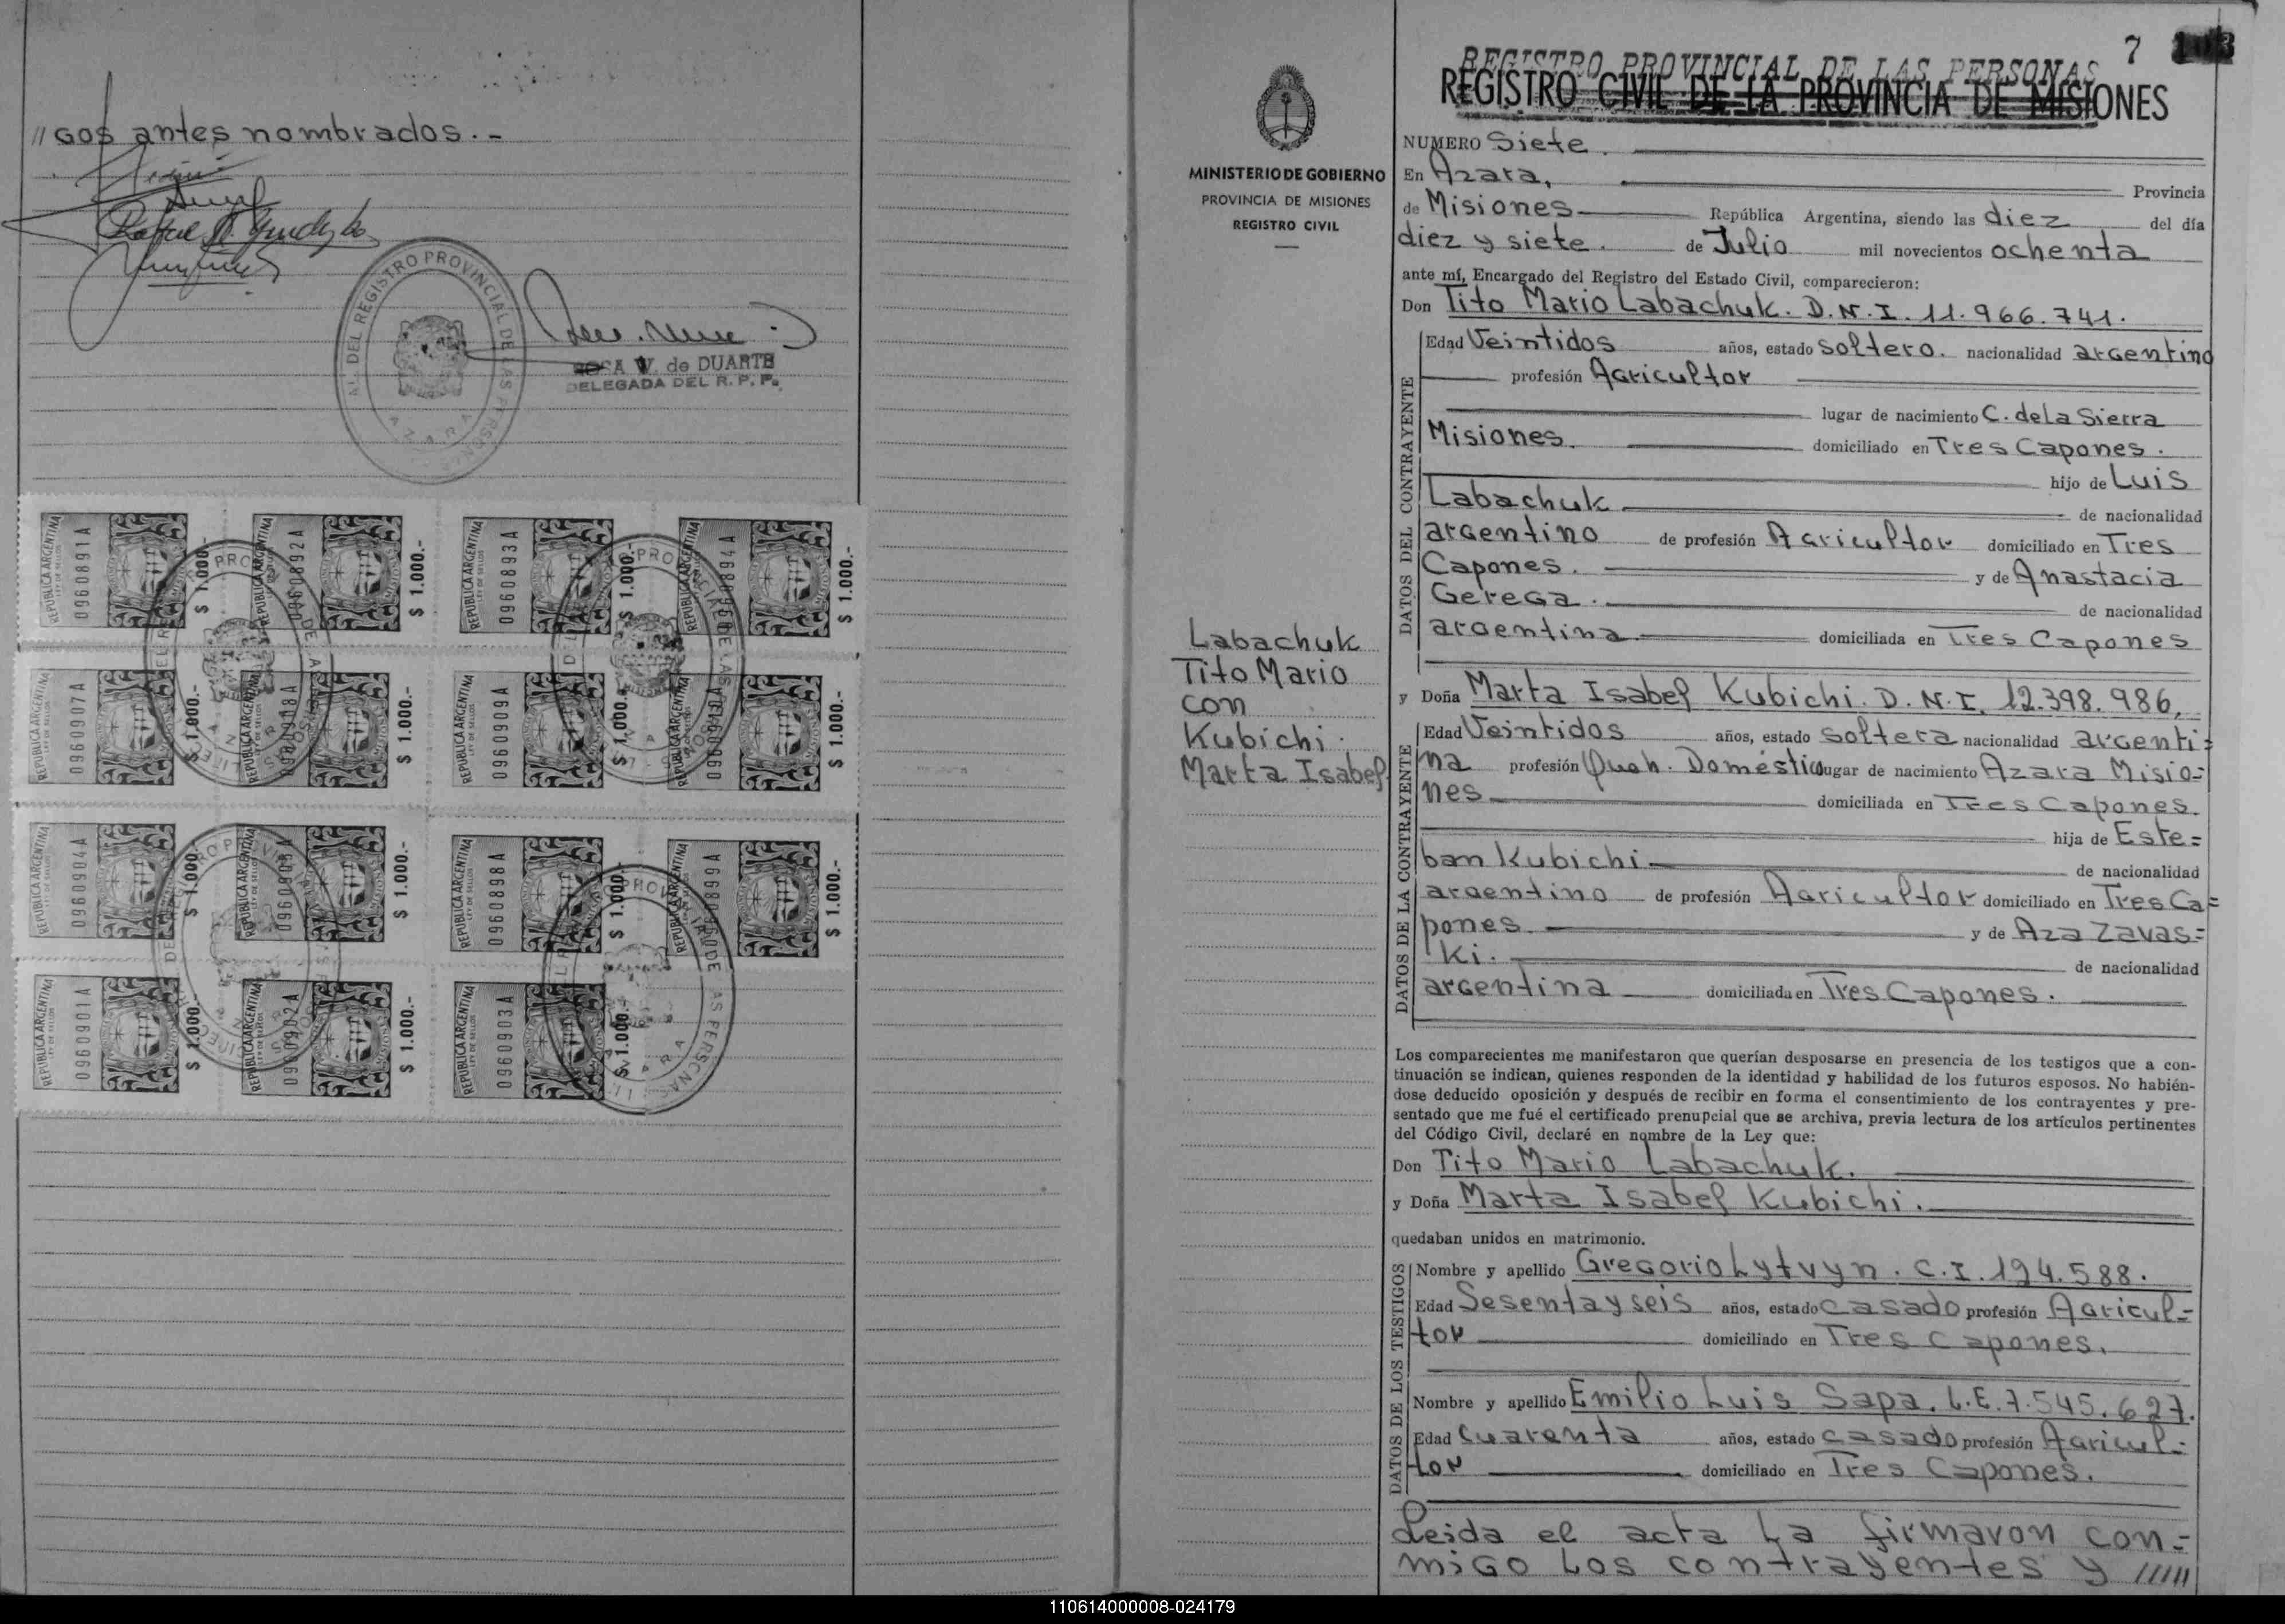 //gos antes nombrados.-
AL. DEL REGISTRO PROVINCIAL DE LAS PERSONAS
AZARA
ROSA V. de DUARTE
DELEGADA DEL R. P. P.
REPUBLICA ARGENTINA
LEY DE SELLOS
0960891A
$ 1.000.-
REPUBLICA ARGENTINA
LEY DE SELLOS
0960892A
$ 1.000.-
REPUBLICA ARGENTINA
LEY DE SELLOS
0960893A
$ 1.000.-
REPUBLICA ARGENTINA
0960894A
$ 1.000.-
REPUBLICA ARGENTINA
LEY DE SELLOS
0960907A
$ 1.000.-
REPUBLICA ARGENTINA
$ 1.000.-
REPUBLICA ARGENTINA
LEY DE SELLOS
0960909A
$ 1.000.-
REPUBLICA ARGENTINA
$ 1.000.-
REPUBLICA ARGENTINA
LEY DE SELLOS
0960904A
$ 1.000
REPUBLICA ARGENTINA
LEY DE SELLOS
0960905A
$ 1.000.-
REPUBLICA ARGENTINA
LEY DE SELLOS
0960898A
$ 1.000.-
REPUBLICA ARGENTINA
0960899A
$ 1.000.-
REPUBLICA ARGENTINA
LEY DE SELLOS
0960901A
$ 1.000.-
REPUBLICA ARGENTINA
LEY DE SELLOS
0960902A
$ 1.000.-
REPUBLICA ARGENTINA
LEY DE SELLOS
0960903A
$ 1.000.-
MINISTERIO DE GOBIERNO
PROVINCIA DE MISIONES
REGISTRO CIVIL
Labachuk
Tito Mario
con
Kubichi.
Marta Isabel
7
REGISTRO PROVINCIAL DE LAS PERSONAS
REGISTRO CIVIL DE LA PROVINCIA DE MISIONES
NUMERO Siete.
En Azara, Provincia
de Misiones República Argentina, siendo las diez del día
diez y siete. de Julio mil novecientos ochenta
ante mí, Encargado del Registro del Estado Civil, comparecieron:
Don Tito Mario Labachuk. D.N.I. 11.966.741.
DATOS DEL CONTRAYENTE
Edad Veintidos años, estado soltero. nacionalidad argentino
profesión Agricultor
lugar de nacimiento C. de la Sierra
Misiones. domiciliado en Tres Capones.
hijo de Luis
Labachuk de nacionalidad
argentino de profesión Agricultor domiciliado en Tres
Capones. y de Anastacia
Gerega. de nacionalidad
argentina domiciliada en Tres Capones
y Doña Marta Isabel Kubichi. D.N.I. 12.398.986.
DATOS DE LA CONTRAYENTE
Edad Veintidos años, estado soltera nacionalidad argenti=
na profesión Queh. Doméstic lugar de nacimiento Azara Misio=
nes domiciliada en Tres Capones.
hija de Este=
ban Kubichi de nacionalidad
argentino de profesión Agricultor domiciliado en Tres Ca=
pones. y de Aza Zavas=
ki. de nacionalidad
argentina domiciliada en Tres Capones.
Los comparecientes me manifestaron que querían desposarse en presencia de los testigos que a con-
tinuación se indican, quienes responden de la identidad y habilidad de los futuros esposos. No habién-
dose deducido oposición y después de recibir en forma el consentimiento de los contrayentes y pre-
sentado que me fué el certificado prenupcial que se archiva, previa lectura de los artículos pertinentes
del Código Civil, declaré en nombre de la Ley que:
Don Tito Mario Labachuk.
y Doña Marta Isabel Kubichi.
quedaban unidos en matrimonio.
DATOS DE LOS TESTIGOS
Nombre y apellido Gregorio Lytvyn. C.I. 194.588.
Edad Sesenta y seis años, estado casado profesión Agricul=
tor domiciliado en Tres Capones.
Nombre y apellido Emilio Luis Sapa. L.E. 7.545.627.
Edad Cuarenta años, estado casado profesión Agricul=
tor domiciliado en Tres Capones.
Leida el acta la firmaron con=
migo los contrayentes y /////
110614000008-024179